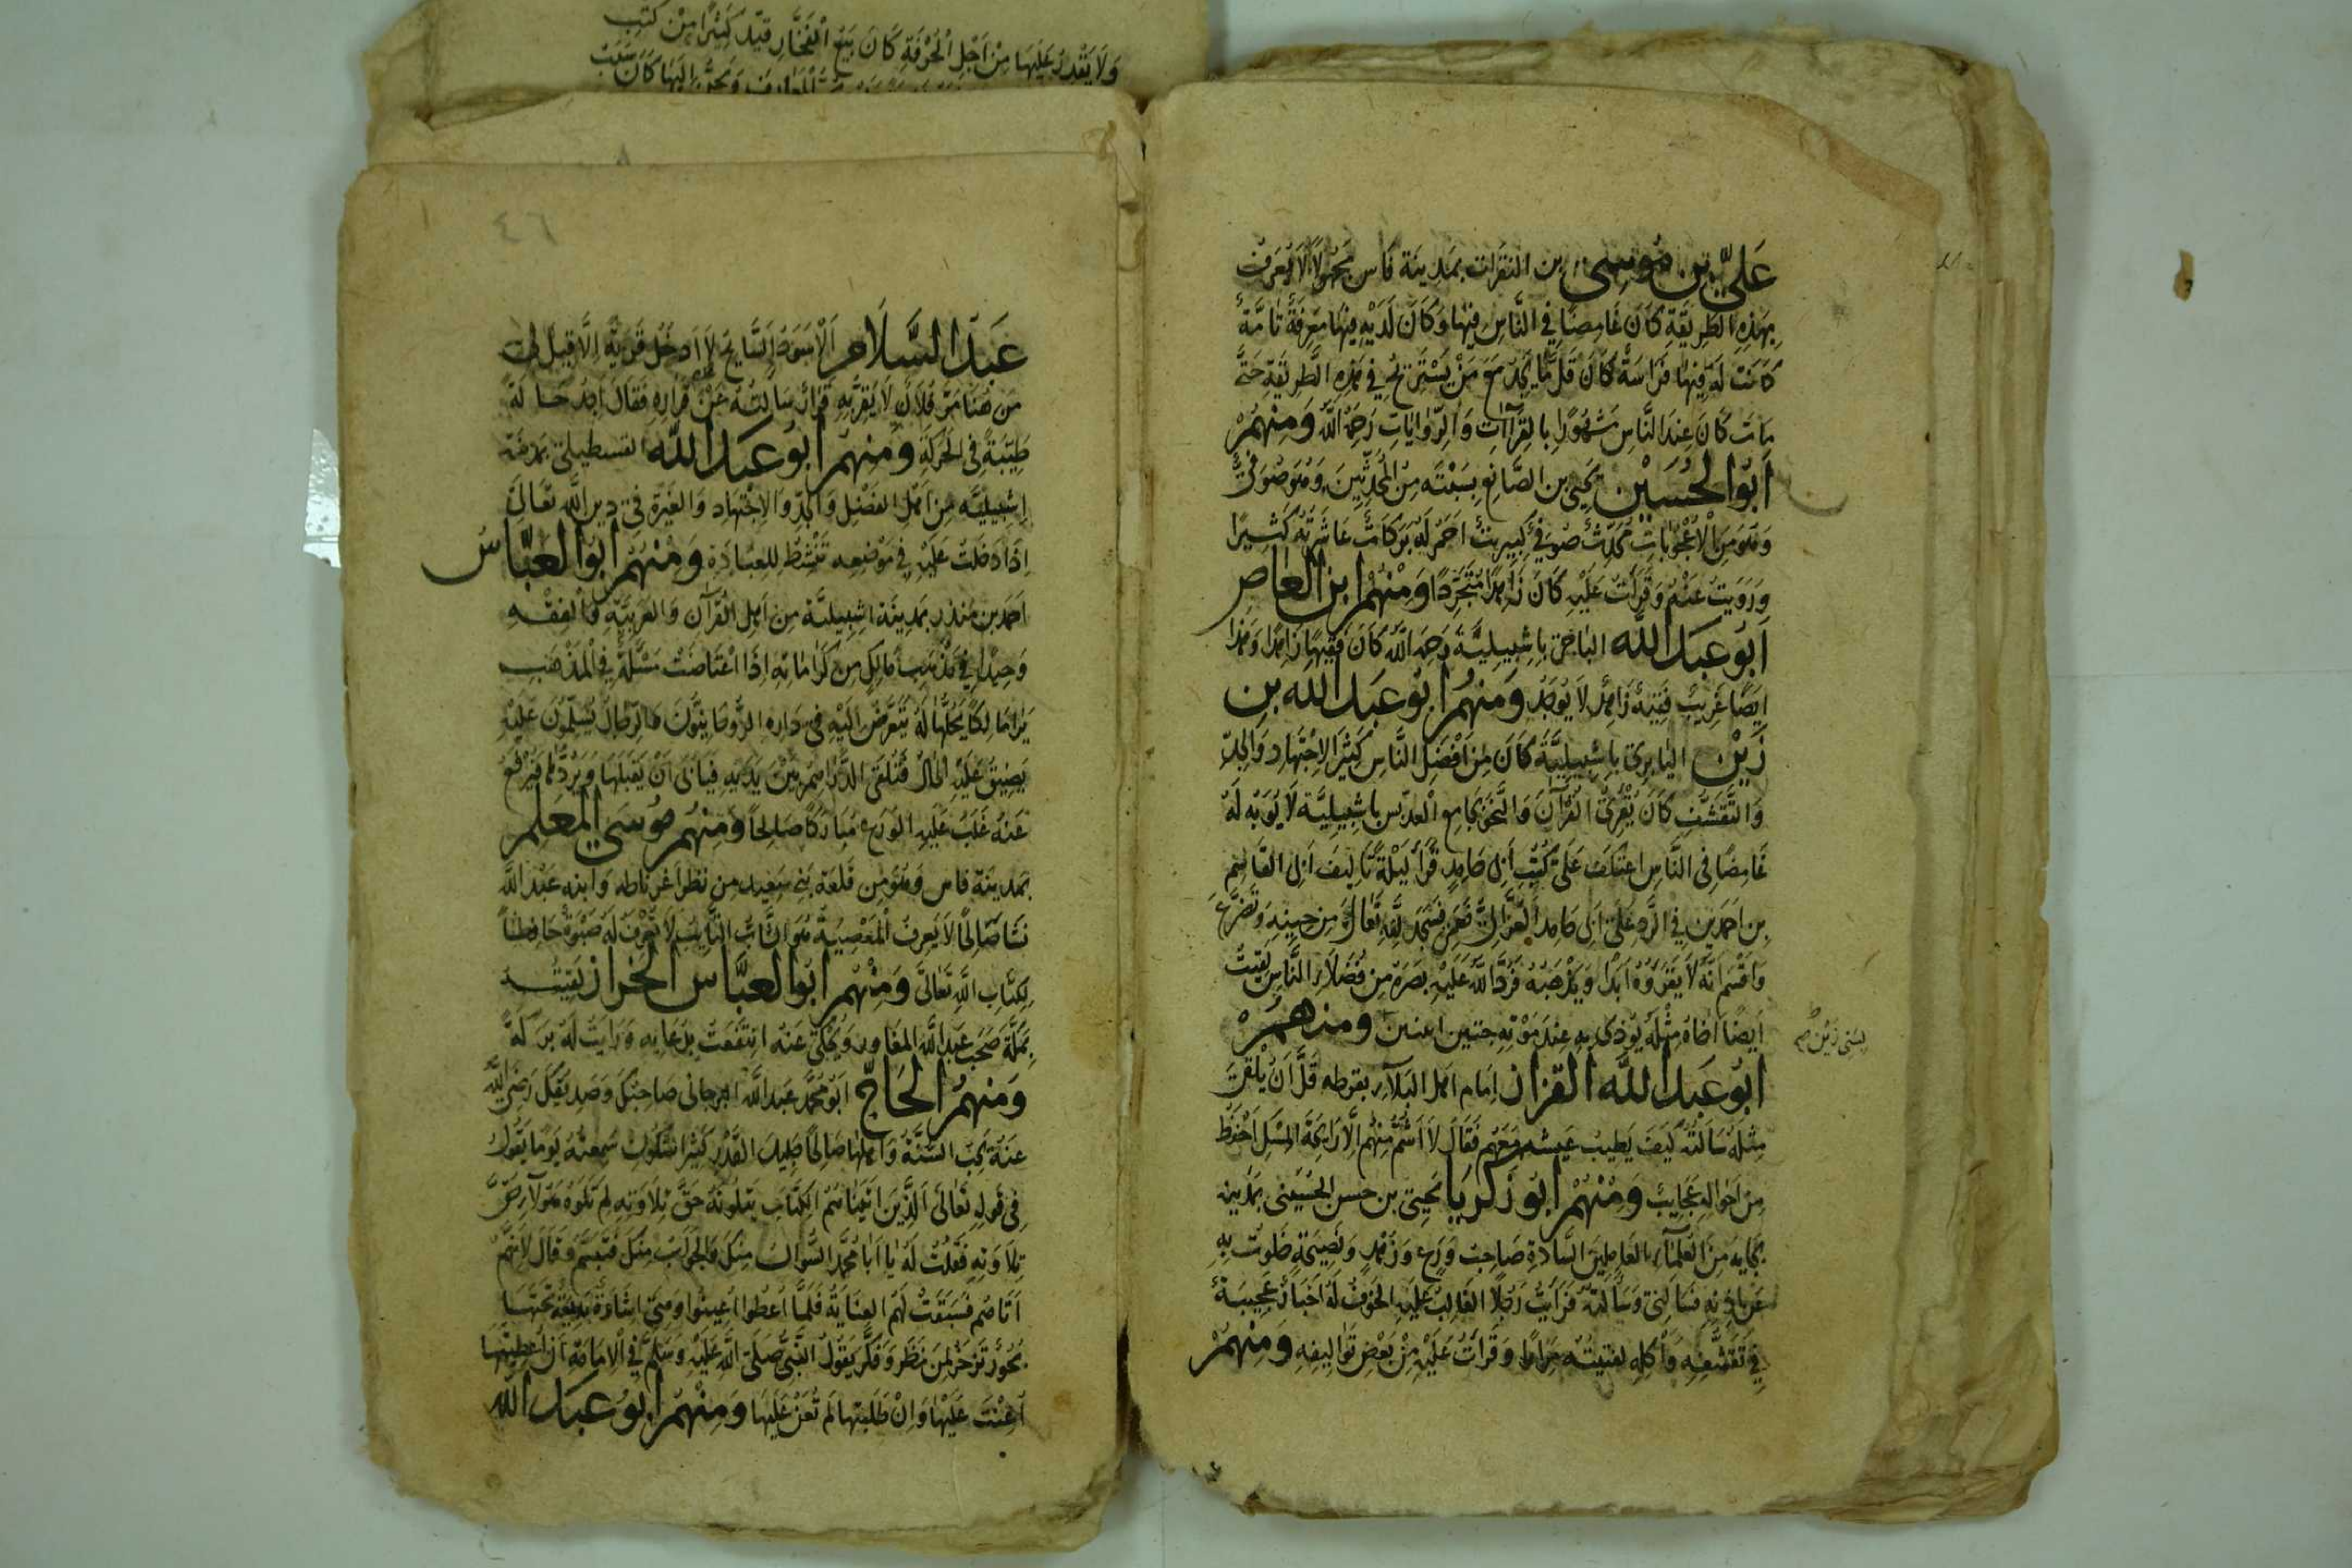 عَلىّ بن مُوسى بن النقرات بمَدِينَة فَاس مَجهُولًا لَا يُعرَفُ
بِهَذِهِ الطَّرِيقَةِ كَانَ غَامِضًا فِي النَّاسِ فِيهَا وَكَانَ لَدَيْهِ فِيهَا مَعرِفَةٌ تَامَّةٌ
كَانَتْ لَهُ فِيهَا فِرَاسَةٌ كَانَ قَلَّ مَا يَجِدُ مَعَ مَنْ يَسْتَرِيحُ فِي هَذِهِ الطَّرِيقَةِ حَتَّى
مَاتَ كَانَ عِندَ النَّاسِ مَشْهُورًا بِالقِرَاآتِ وَالرِّوَايَاتِ رَحِمَهُ اللهُ وَمِنهُمْ
أَبُو الحُسَيْن يَحيَى بن الصَّائغ بِسَبْتَه مِنَ المُحَدِّثِينَ وَهُوَ صُوفِيٌّ
وَهُوَ مِنَ الْأُعْجُوبَاتِ مُحَدِّثٌ صُوفِيٌّ كِبرِيتٌ احمَر لَهُ بَرَكَاتٌ عَاشَرتُهُ كَثِيرًا
وَرَوَيتُ عَنْهُ وَقَرَأتُ عَلَيْهِ كَانَ زَاهِدًا مُتَجَرِّدًا وَمِنْهُمْ ابن العاص
أَبُو عَبدُ الله الباجى بِاِشبِيلِيَّةَ رَحِمَهُ اللهُ كَانَ فَقِيهًا زَاهِدًا وَهَذَا
اَيضًا غَرِيبٌ فَقِيهٌ زَاهِدٌ لَا يُوجَدُ وَمِنهُمْ أبُو عَبدُ الله بن
زَيْن اليابرى بِاِشبِيلِيَّةَ كَانَ مِن أفْضَلِ النَّاسِ كَثِيرَ الاِجتِهَادِ وَالجِدِّ
وَالتَّقَشُّفِ كَانَ يُقْرِئُ القُرْآنَ وَالنَّحوَ بِجَامِعِ العدبس بِاشبِيلِيَّة لَا يُؤبَهُ لَهُ
غَامِضًا فِى النَّاسِ اعتكَفَ عَلَى كُتُبِ اَبِى حَامِدٍ قَرَأ لَيْلَةً تَالِيفَ اَبِى القَاسِم
بن اَحمَدِين فِي الرَّدِّ عَلَى اَبِى حَامِد الغَزَّالِيِّ فَعَمِىَ فَسَجَدَ لِلَّهِ تَعَالَى مِن حِينِهِ وَتَضَرَّعَ
وَاَقْسَمَ اَنَّهُ لَا يَقرَؤُهُ اَبَدًا وَيُذْهِبُهُ فَرَدَّ اللَّهُ عَلَيْهِ بَصَرَهُ مِن فُضَلَاءِ النَّاسِ لَقِيتُ
اَيضًا اَخَاهُ مِثْلَهُ يُودِى بِهِ عِندَ مَوْتِهِ جنتين اثنين ومنهمْ
يسمى زَيْن صح
أبُو عَبدُ اللَّه القزاز اِمَام اهل البَلآء بقرطبه قَلَّ اَنْ يُلْقَى
مِثْلُهُ سَاَلتُهُ كَيفَ يَطِيبُ عَيشه مَعَهُم فَقَالَ لَا اَشُمُّ مِنْهُم اِلَّا رَايِحَةَ المِسْكِ اَحْفَظُ
مِنْ اَحْوَالِهِ عَجَايِبَ وَمِنْهُمْ أبُو زَكَريا يَحيَى بن حسن الحُسَينى بِمَدِينَة
بِجَايَه مِنَ العُلَمَآءِ العَامِلِينَ السَّادَةِ صَاحِبُ وَرَعٍ وَزُهْدٍ وَنَصِيحَةٍ خَلَوتُ بِهِ
عَن اذنِهِ فَسَالَنِى وَسَاَلتُهُ فَرَاَيتُ رَجُلًا الغَالِبُ عَلَيهِ الخَوفُ لَهُ اَخبَارٌ عَجِيبَةٌ
فِي تَقَشُّفِهِ وَاَكلِهِ لقيتُهُ مِرَارًا وَقَرَأتُ عَلَيْهِ مِنْ بَعْضِ تَوَالِيفِهِ وَمِنهُمْ
٤٦
عَبدُ السَّلَام اَلْاَسْوَدُ السَّايحُ لَا اَدخُلُ قَريَةً اِلَّا قِيلَ لِي
مِن هُنَا مَرَّ فُلَانٌ لَا يَقِرُّ بِهِ قَرَار سَالتُهُ عَنْ قَرَارِهِ فَقَالَ اَجِدُ حَالَةً
طَيِّبَةً فِى الحَرَكَةِ وَمِنهُمْ أبُو عَبدُ اللَّه القسطيلى بِمدِينَة
اِشْبِيلِيَّه مِنْ اَهْلِ الفَضْلِ وَالجِدِّ وَالاِجْتِهَاد وَالغَيرَةِ فِى دِين اللَّهِ تَعَالَى
اِذَا دَخَلتَ عَلَيْهِ فِى مَوْضِعِه تَنْشطُ لِلعِبَادَةِ وَمِنْهُمْ أبُو العَبَّاسُ
اَحمَد بن مُنذِر بِمَدِينَةِ اِشبِيلِيَّة مِن اَهلِ القُرْآنِ وَالعَرَبِيَّةِ وَالفِقْهِ
وَحِيدًا فِي مَذْهَب مَالِكٍ مِن كَرَامَاتِهِ اِذَا اعْتَاصَتْ مَسْئَلَةٌ فِي المَذْهَبِ
يَرَى مَالِكًا يَحُلُّهَا لَهُ تَتَعَرَّضُ اِلَيْهِ فِى دَارِهِ الرُّوحَانِيُّونَ وَالرِّجَالُ يُسَلِّمُونَ عَلَيْهِ
يَضِيقُ عَلَيْهِ الحَالُ فَتُلقَى الدَّرَاهِمُ بَيْنَ يَدَيْهِ فَيَابَى اَنْ يَقبَلَهَا وَيَرُدُّهَا فَتُرْفَعُ
عَنْهُ غَلَبَ عَلَيْهِ الوَرَعُ مُبَارَكًا صَالِحًا وَمِنهُم مُوسَى المعَلم
بِمَدِينَة فَاس وَهُوَ مِن قَلعَة بَنِى سَعِيد مِن نَظَرِ اغرناطه وَابنه عَبْدُ اللَّه
نَشَا صَالِحًا لَا يَعرِفُ المَعْصِيَةَ هُوَ الشَّابُّ التَّايِبُ لَا يُعْرَفُ لَهُ صَبْوَةٌ حَافِظًا
لِكِتَابِ اللَّهِ تَعَالَى وَمِنْهُمْ أبُو العَبَّاس الخراز لَقِيتُهُ
بِمَكَّةَ صَحِبَ عَبدَ اللَّهِ المغاور وَيُحْكَى عَنْهُ انتَفَعتُ بِدُعَايِهِ وَرَاَيتُ لَهُ بَرَكَةً
وَمِنهُمْ الحَاجّ أبُو مُحَمَّد عَبدُ اللَّه البرجانى صَاحِبُكَ وَصَدِيقُكَ رَضِيَ اللهُ
عَنْهُ يُحِبُّ السُّنَّةَ وَاَهْلَهَا صَالِحًا جَلِيلَ القَدْرِ كَثِيرَ السُّكُوتِ سَمِعتُهُ يَومًا يَقُولُ
فِى قَولِهِ تَعَالَى اَلَّذِينَ اتَيْنَاهُمُ الكِتَابَ يَتلُونَهُ حَقَّ تِلَاوَتِهِ لِمَ تَلَوْهُ هٰؤلآءِ حَقَّ
تِلَاوَتِهِ فَقُلتُ لَهُ يَا اَبَا مُحَمَّد السُّوالُ مِنكَ وَالجَوابُ مِنكَ فَتَبَسَّمَ وَقَالَ لِاَنَّهُمْ
اَتَاهُم فَسَبَقَتْ لَهُم العِنَايَةُ فَلَمَّا اُعطُوا اُعِينُوا وَهِيَ اِشَارَةٌ بَدِيعَةٌ تَحتَهَا
بُحُورٌ تَزخَرُ لِمَن نَظَرَ وَفَكَّرَ يَقُولُ النَّبِيُّ صَلَّى اللَّهُ عَلَيْهِ وَسَلَّمَ فِي الاِمَامَةِ اِن اُعطِيتَهَا
اُعِنْتَ عَلَيْهَا وَاِنْ طَلَبْتَهَا لَم تُعَنْ عَلَيهَا وَمِنْهُمْ أبُو عَبدُ اللَّه